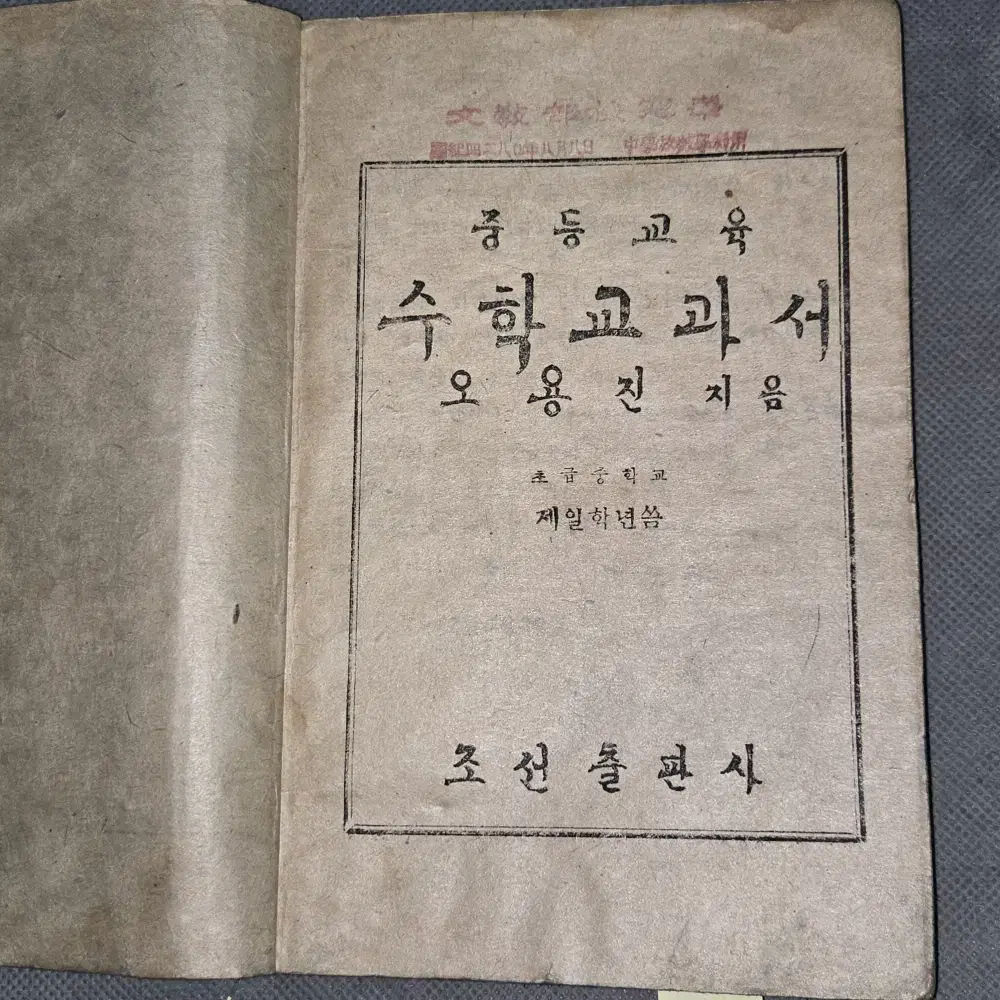 文教部
中等教育
중등교육
수학교과서
오용진 지음
초급중학교
제일학년씀
조선출판사